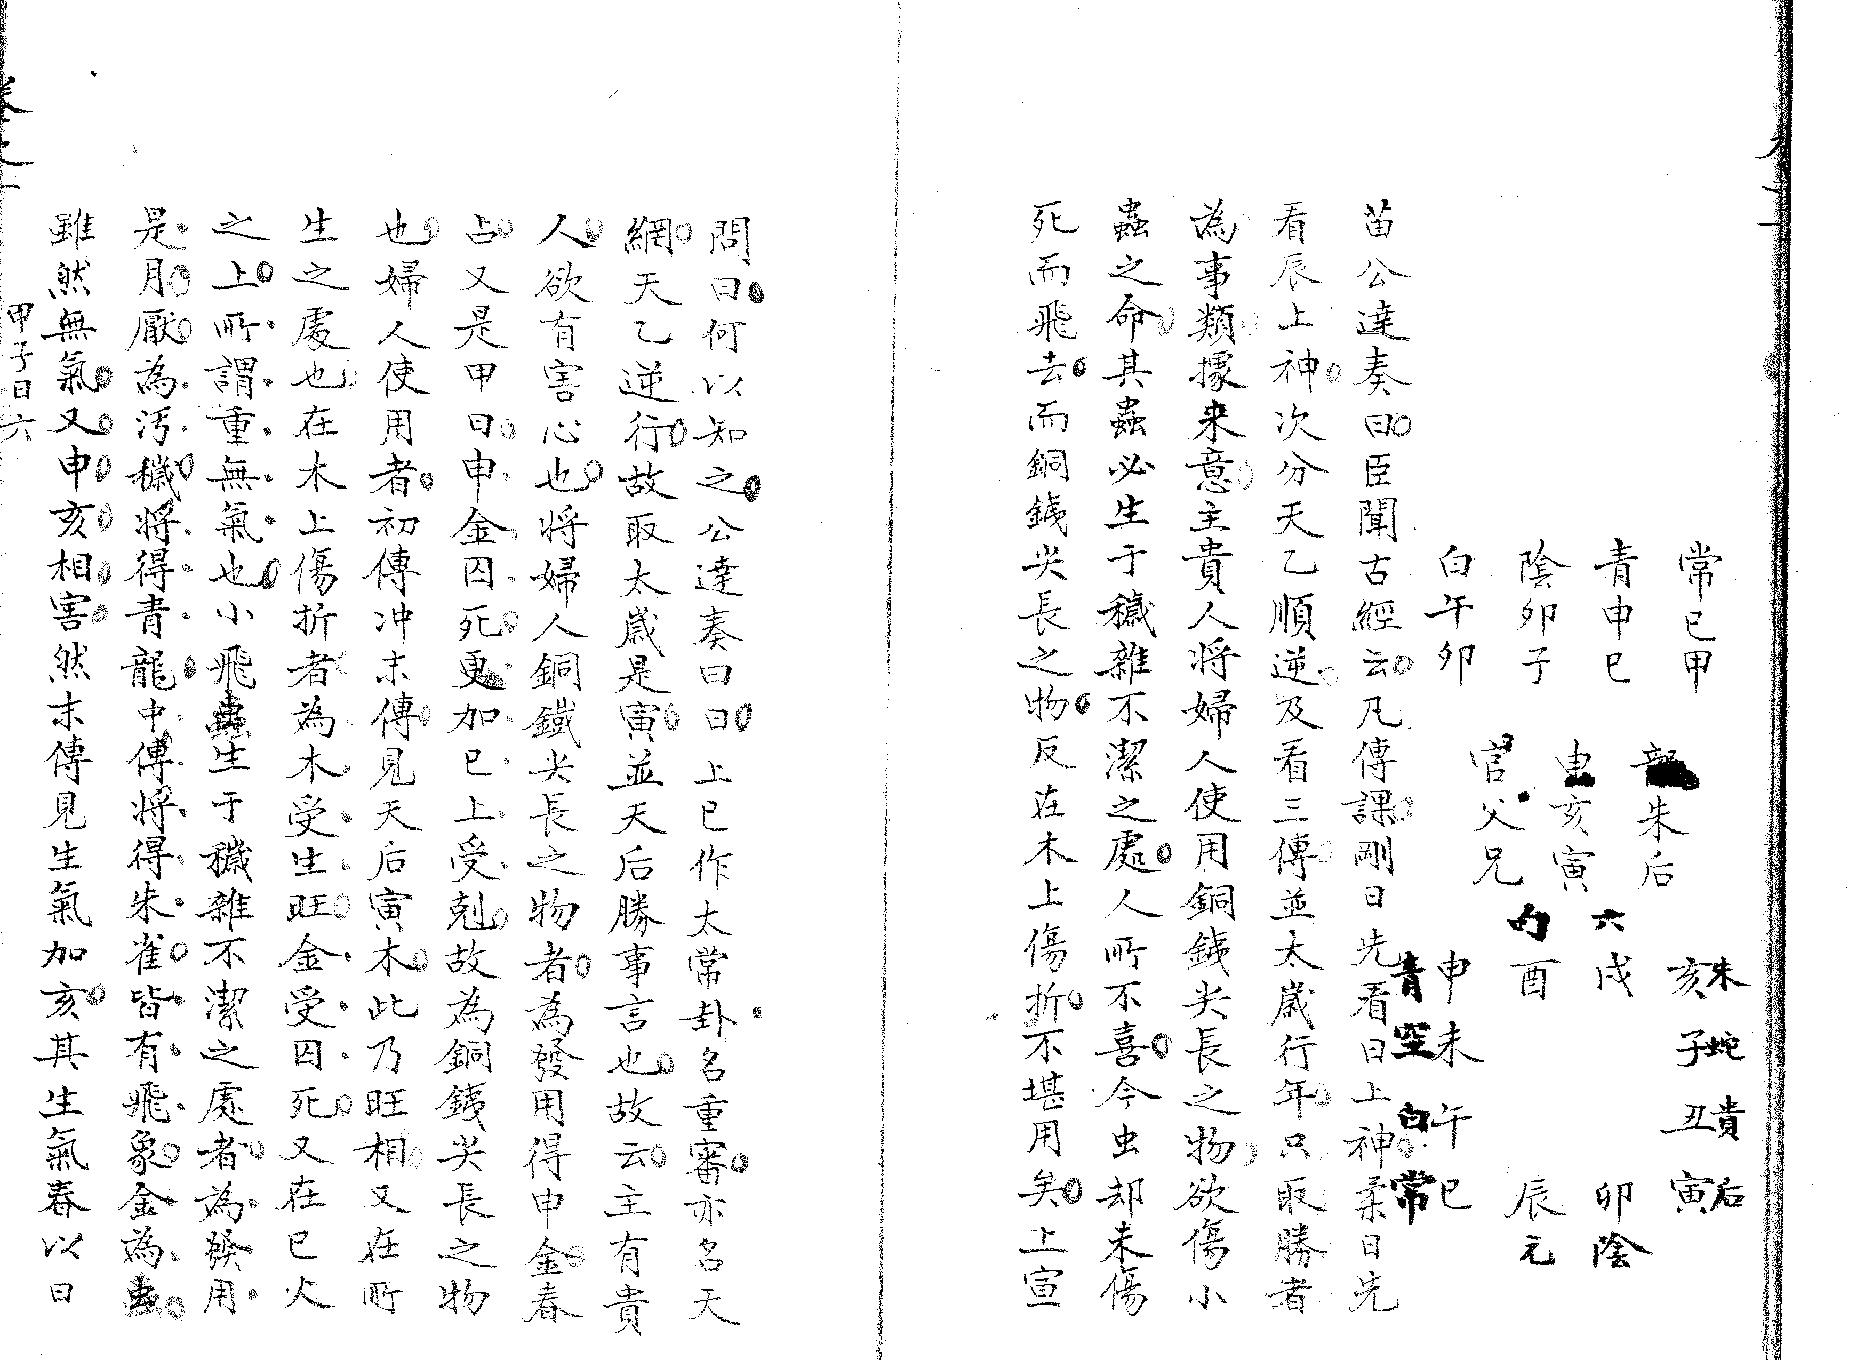 常巳甲
青申巳
陰卯子
白午卯
朱后
亥寅
官父兄
六戌 卯陰
勾酉 辰元
亥朱
子蛇
丑貴
寅后
申青
未空
午白
巳常
苗公達奏曰臣聞古經云凡傳課剛日先看日上神柔日先
看辰上神次分天乙順逆及看三傳並太歲行年只取勝者
為事類據来意主貴人將婦人使用銅銕尖長之物欲傷小
蟲之命其蟲必生于穢雜不潔之處人所不喜今虫却未傷
死而飛去而銅銕尖長之物反在木上傷折不堪用矣上宣
問曰何以知之公達奏曰曰上巳作太常卦名重審亦名天
網天乙逆行故取太歲是寅並天后勝事言也故云主有貴
人欲有害心也將婦人銅鐵尖長之物者為發用得申金春
占又是甲日申金囚死更加巳上受剋故為銅銕尖長之物
也婦人使用者初傳冲末傳見天后寅木此乃旺相又在所
生之處也在木上傷折者為木受生旺金受囚死又在巳火
之上所謂重無氣也小飛蟲生于穢雜不潔之處者為發用
是月厭為汚穢將得青龍中傳將得朱雀皆有飛象金為蟲
雖然無氣又申亥相害然末傳見生氣加亥其生氣春以日
甲子日六